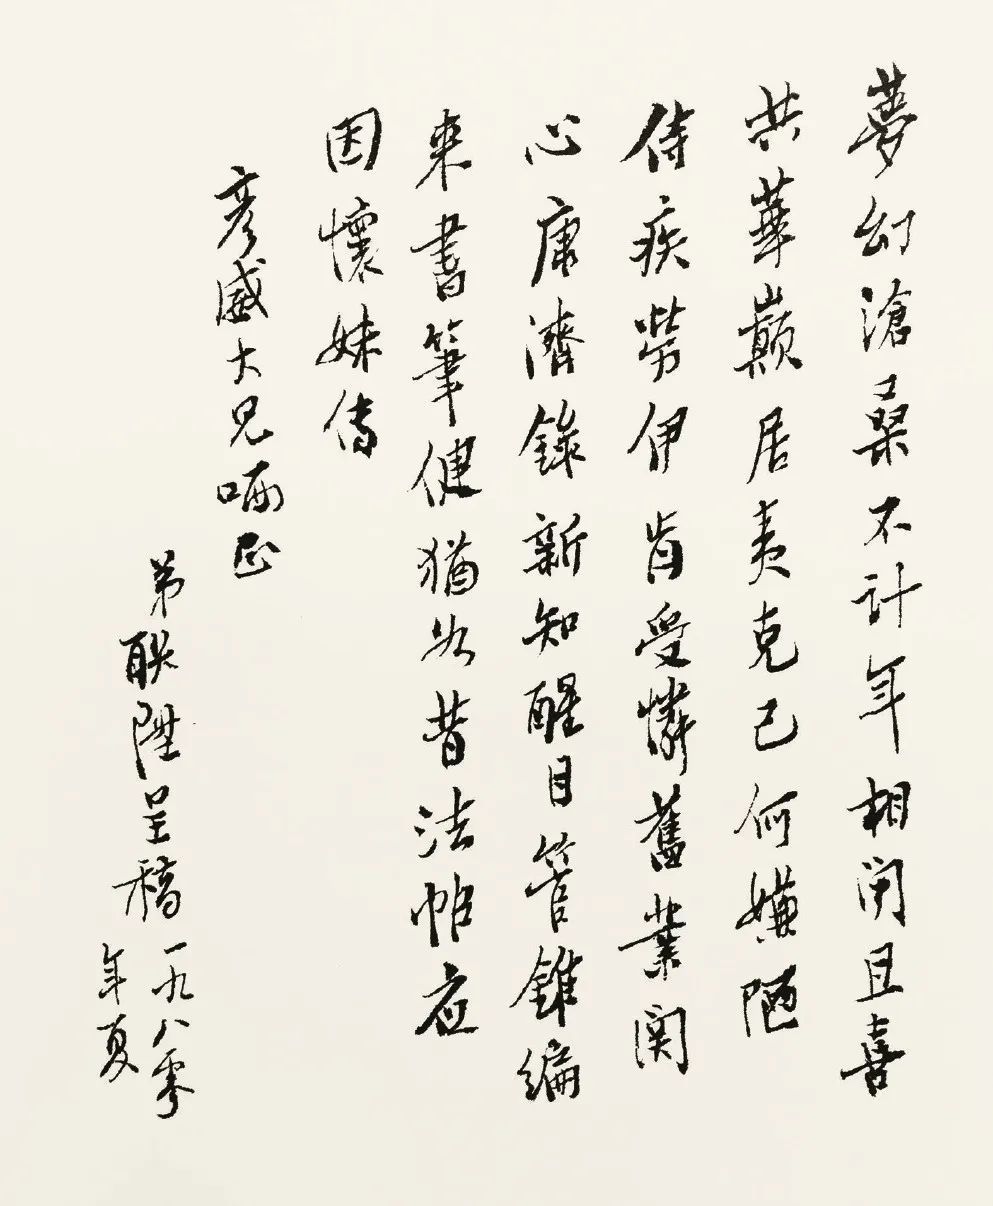 夢幻滄桑不計年相聞且喜
共華巔居夷克己何嫌陋
侍疾勞伊肯受憐舊業関
心康濟錄新知醒目管錐編
来書筆健猶如昔法帖应
因懷妹傳
彦威大兄哂正
弟聯陞呈稿一九八零
年夏